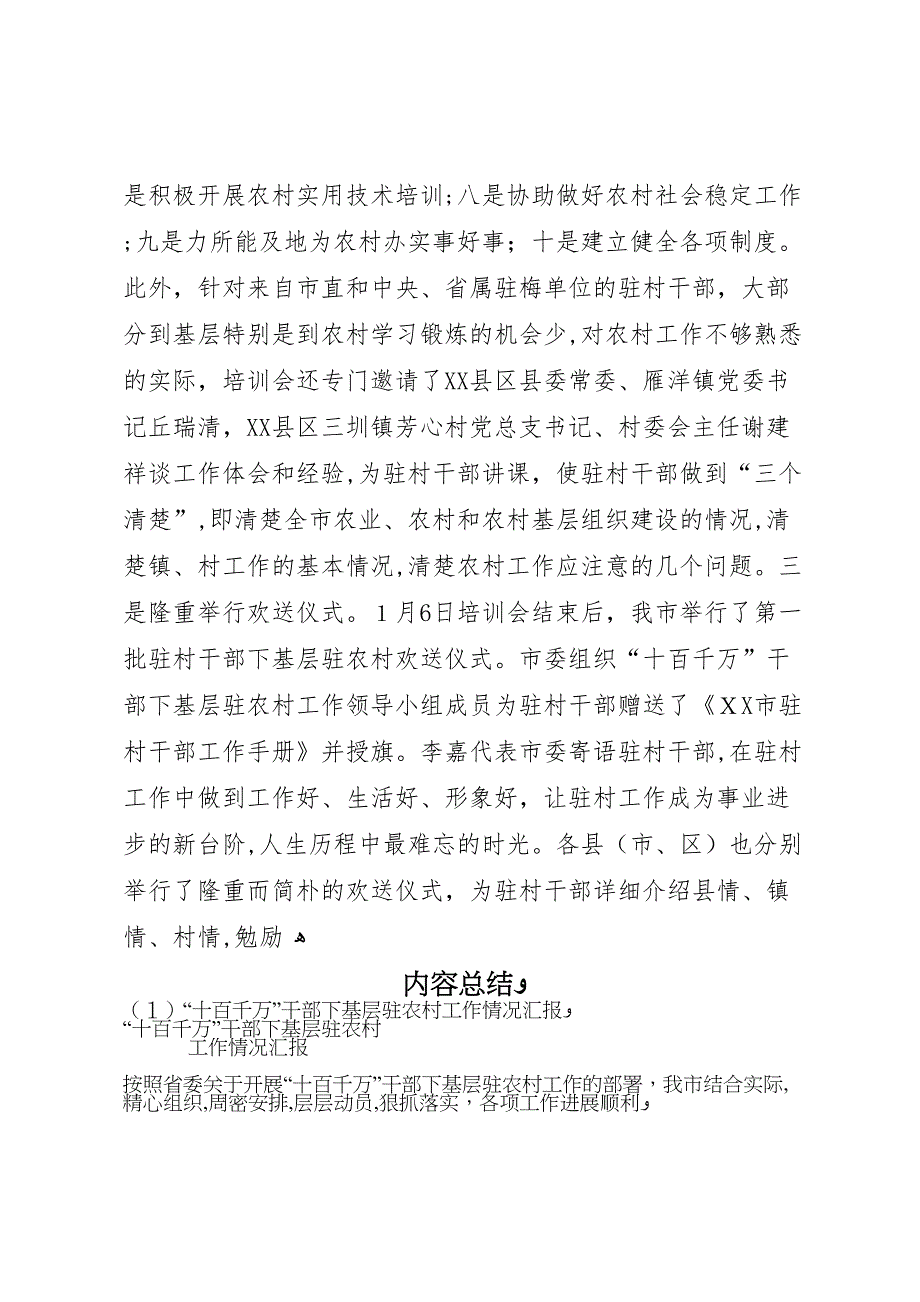 是积极开展农村实用技术培训;八是协助做好农村社会稳定工作
;九是力所能及地为农村办实事好事；十是建立健全各项制度。
此外，针对来自市直和中央、省属驻梅单位的驻村干部，大部
分到基层特别是到农村学习锻炼的机会少,对农村工作不够熟悉
的实际，培训会还专门邀请了XX县区县委常委、雁洋镇党委书
记丘瑞清，XX县区三圳镇芳心村党总支书记、村委会主任谢建
祥谈工作体会和经验,为驻村干部讲课，使驻村干部做到“三个
清楚”,即清楚全市农业、农村和农村基层组织建设的情况,清
楚镇、村工作的基本情况,清楚农村工作应注意的几个问题。三
是隆重举行欢送仪式。１月6日培训会结束后，我市举行了第一
批驻村干部下基层驻农村欢送仪式。市委组织“十百千万”干
部下基层驻农村工作领导小组成员为驻村干部赠送了《ＸX市驻
村干部工作手册》并授旗。李嘉代表市委寄语驻村干部,在驻村
工作中做到工作好、生活好、形象好，让驻村工作成为事业进
步的新台阶,人生历程中最难忘的时光。各县（市、区）也分别
举行了隆重而简朴的欢送仪式，为驻村干部详细介绍县情、镇
情、村情,勉励 ﻫ
内容总结ﻭ
（１）“十百千万”干部下基层驻农村工作情况汇报ﻭ
“十百千万”干部下基层驻农村
工作情况汇报
按照省委关于开展“十百千万”干部下基层驻农村工作的部署，我市结合实际,
精心组织,周密安排,层层动员,狠抓落实，各项工作进展顺利ﻭ